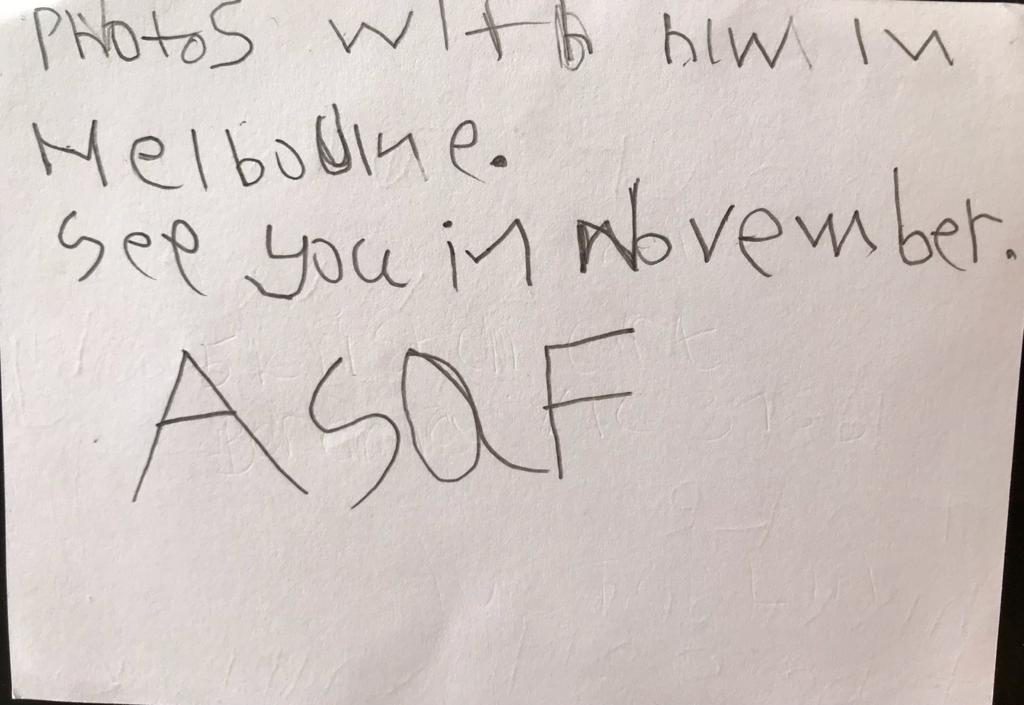 Photos with him in
Melboune.
See you in November.
ASaF